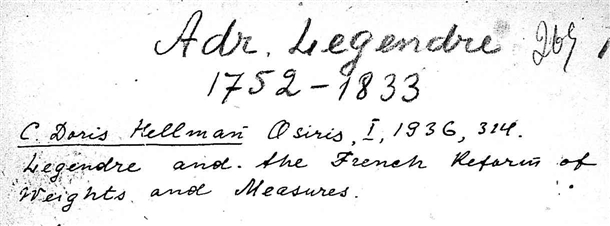 Adr. Legendre 269
1752-1833
C. Doris Hellman Osiris, I, 1936, 314.
Legendre and the French Reform of
Weights and Measures.